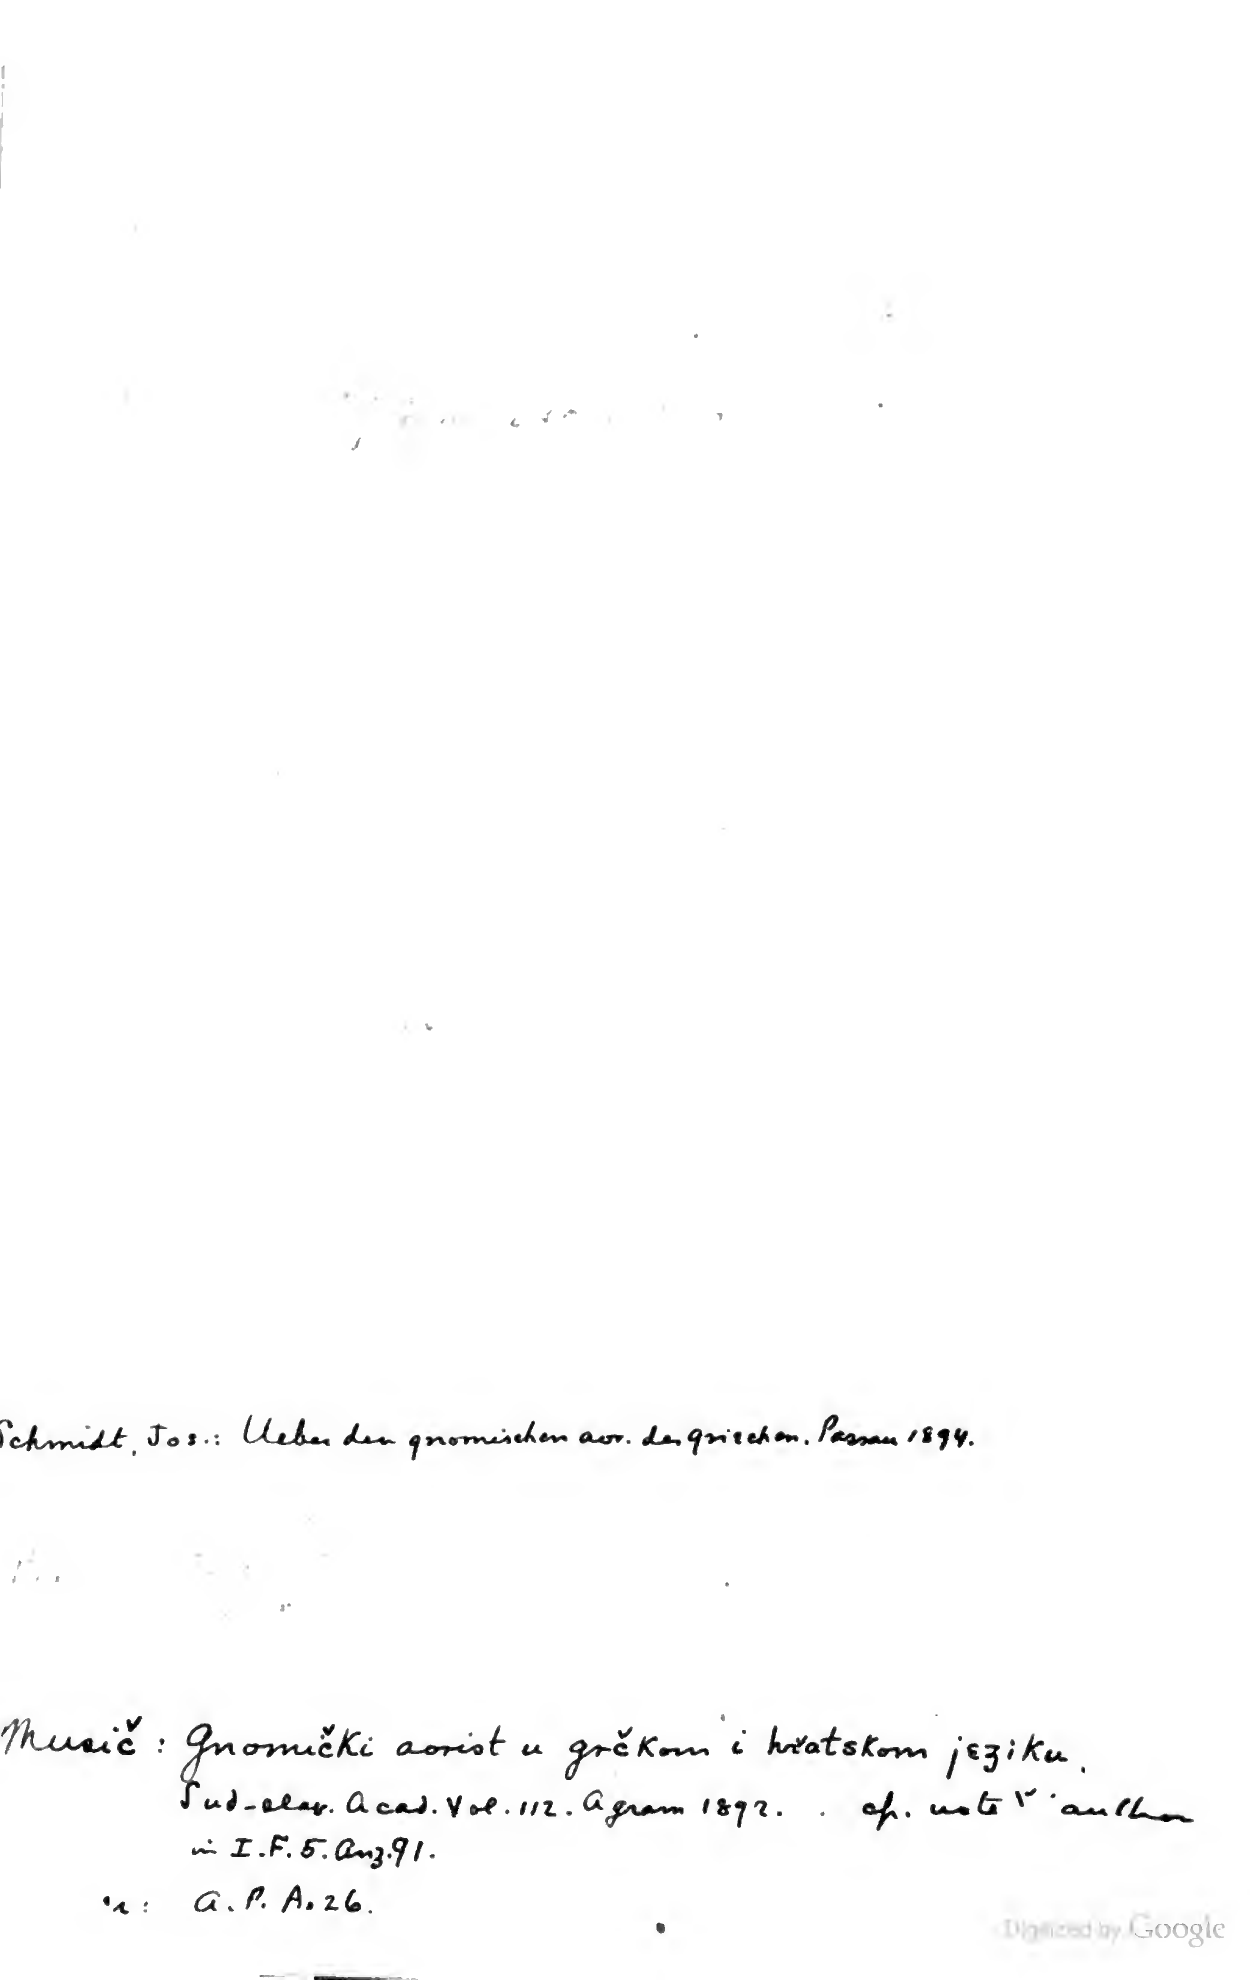 Schmidt, Jos.: Ueber den gnomischen aor. des griechen. Passau 1894.
Musič: Gnomički aorist u grčkom i hrvatskom jeziku.
Sud-slav. Acad. Vol. 112. Agram 1892. cp. note by author
in I.F.5.Anz.91.
A.P.A.26.
Digitized by Google